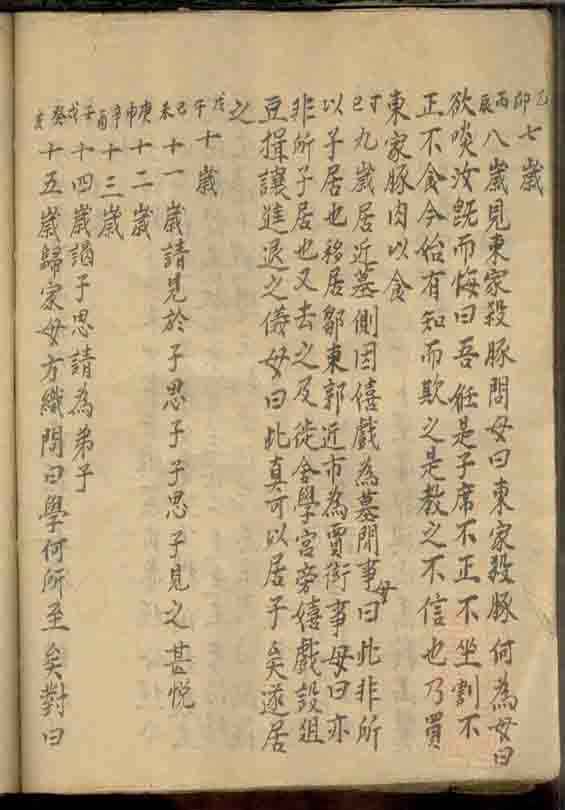 乙卯七歲
丙辰八歲見東家殺豚問母曰東家殺豚何為母曰
欲啖汝旣而悔曰吾任是子席不正不坐割不
正不食今始有知而欺之是教之不信也乃買
東家豚肉以食
丁巳九歲居近墓側因嬉戲為墓間事母曰此非所
以子居也移居鄒東郭近市為賈衒事母曰亦
非所子居也又去之及徙舍學宮旁嬉戲設俎
豆揖讓進退之儀母曰此真可以居子矣遂居
之
戊午十歲
己未十一歲請見於子思子子思子見之甚悅
庚申十二歲
辛酉十三歲
壬戌十四歲謁子思請為弟子
癸亥十五歲歸家母方織問曰學何所至矣對曰